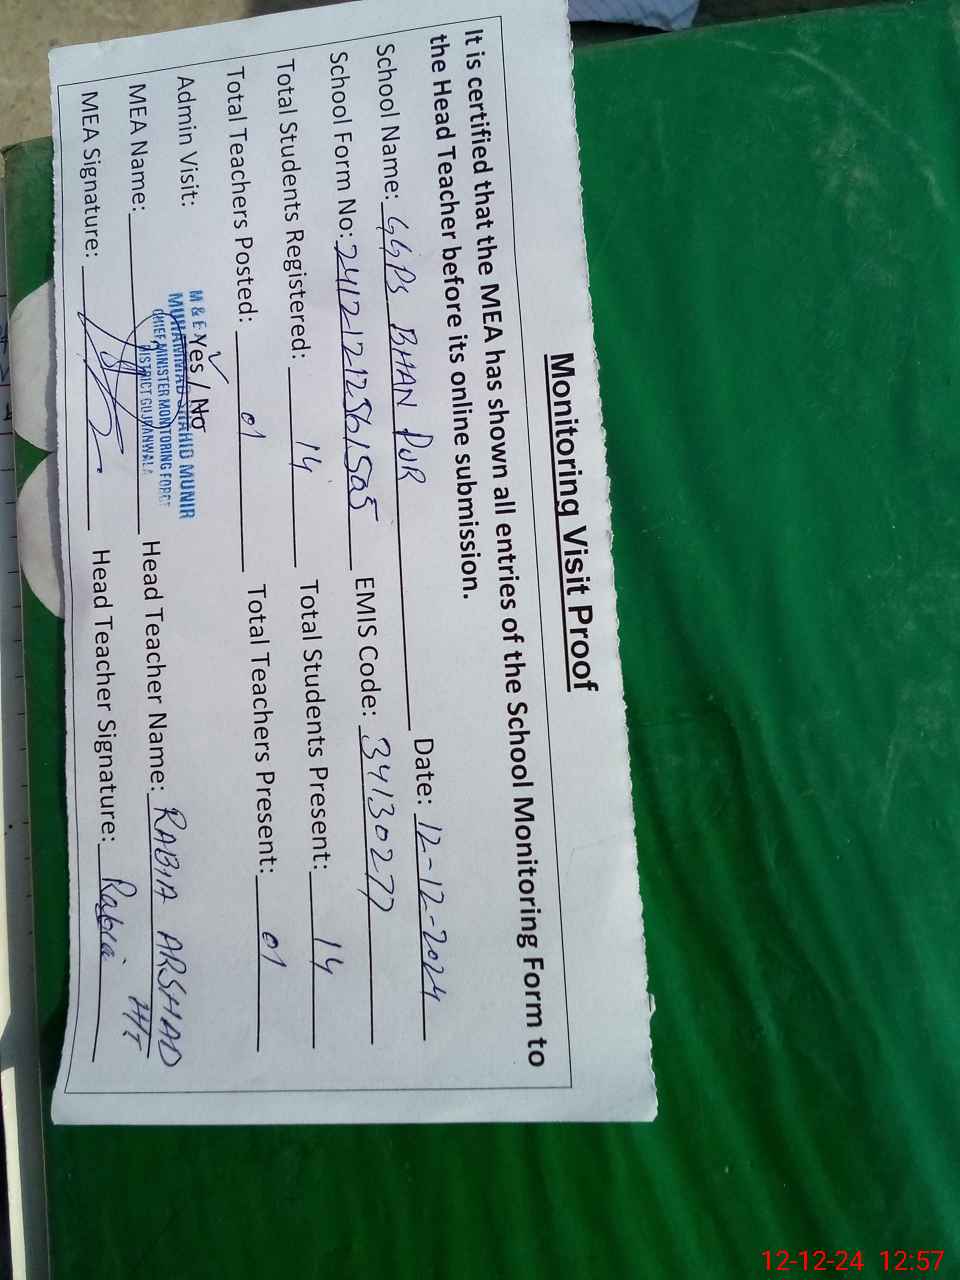 Monitoring Visit Proof
It is certified that the MEA has shown all entries of the School Monitoring Form to
the Head Teacher before its online submission.
School Name: GGPS BHAN PUR Date: 12-12-2024
School Form No: 24121212561505 EMIS Code: 34130277
Total Students Registered: 14 Total Students Present: 14
Total Teachers Posted: 01 Total Teachers Present: 01
Admin Visit: Yes / No
M & E
MUHAMMAD SHAHID MUNIR
CHIEF MINISTER MONITORING FORCE
DISTRICT GUJRANWALA
MEA Name: Head Teacher Name: RABIA ARSHAD
H/T
MEA Signature: Head Teacher Signature: Rabia
12-12-24 12:57